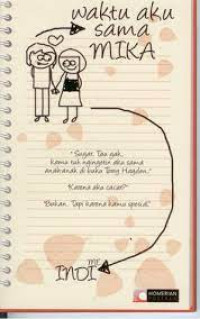 waktu aku
sama
MIKA
"Sugar, Tau gak,
kamu tuh ngingetin aku sama
anak-anak di buku Torey Hayden."
"Karena aku cacat?"
"Bukan. Tapi karena kamu spesial."
INDI
HOMERIAN